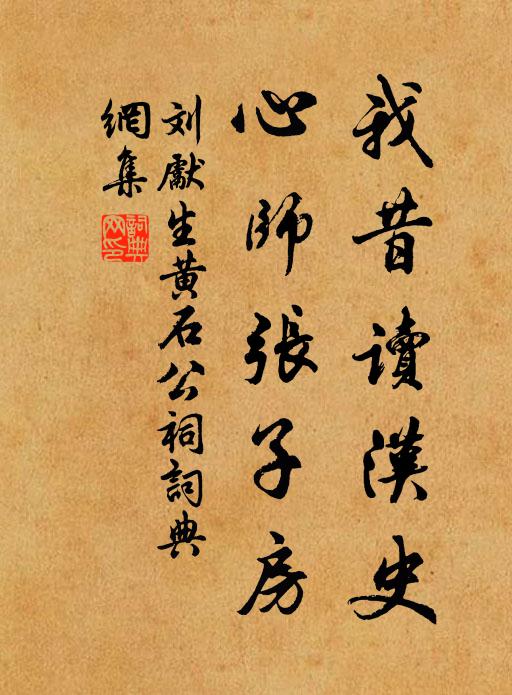 我昔讀漢史
心師張子房
刘獻生黄石公祠詞典
網集
詞典网印